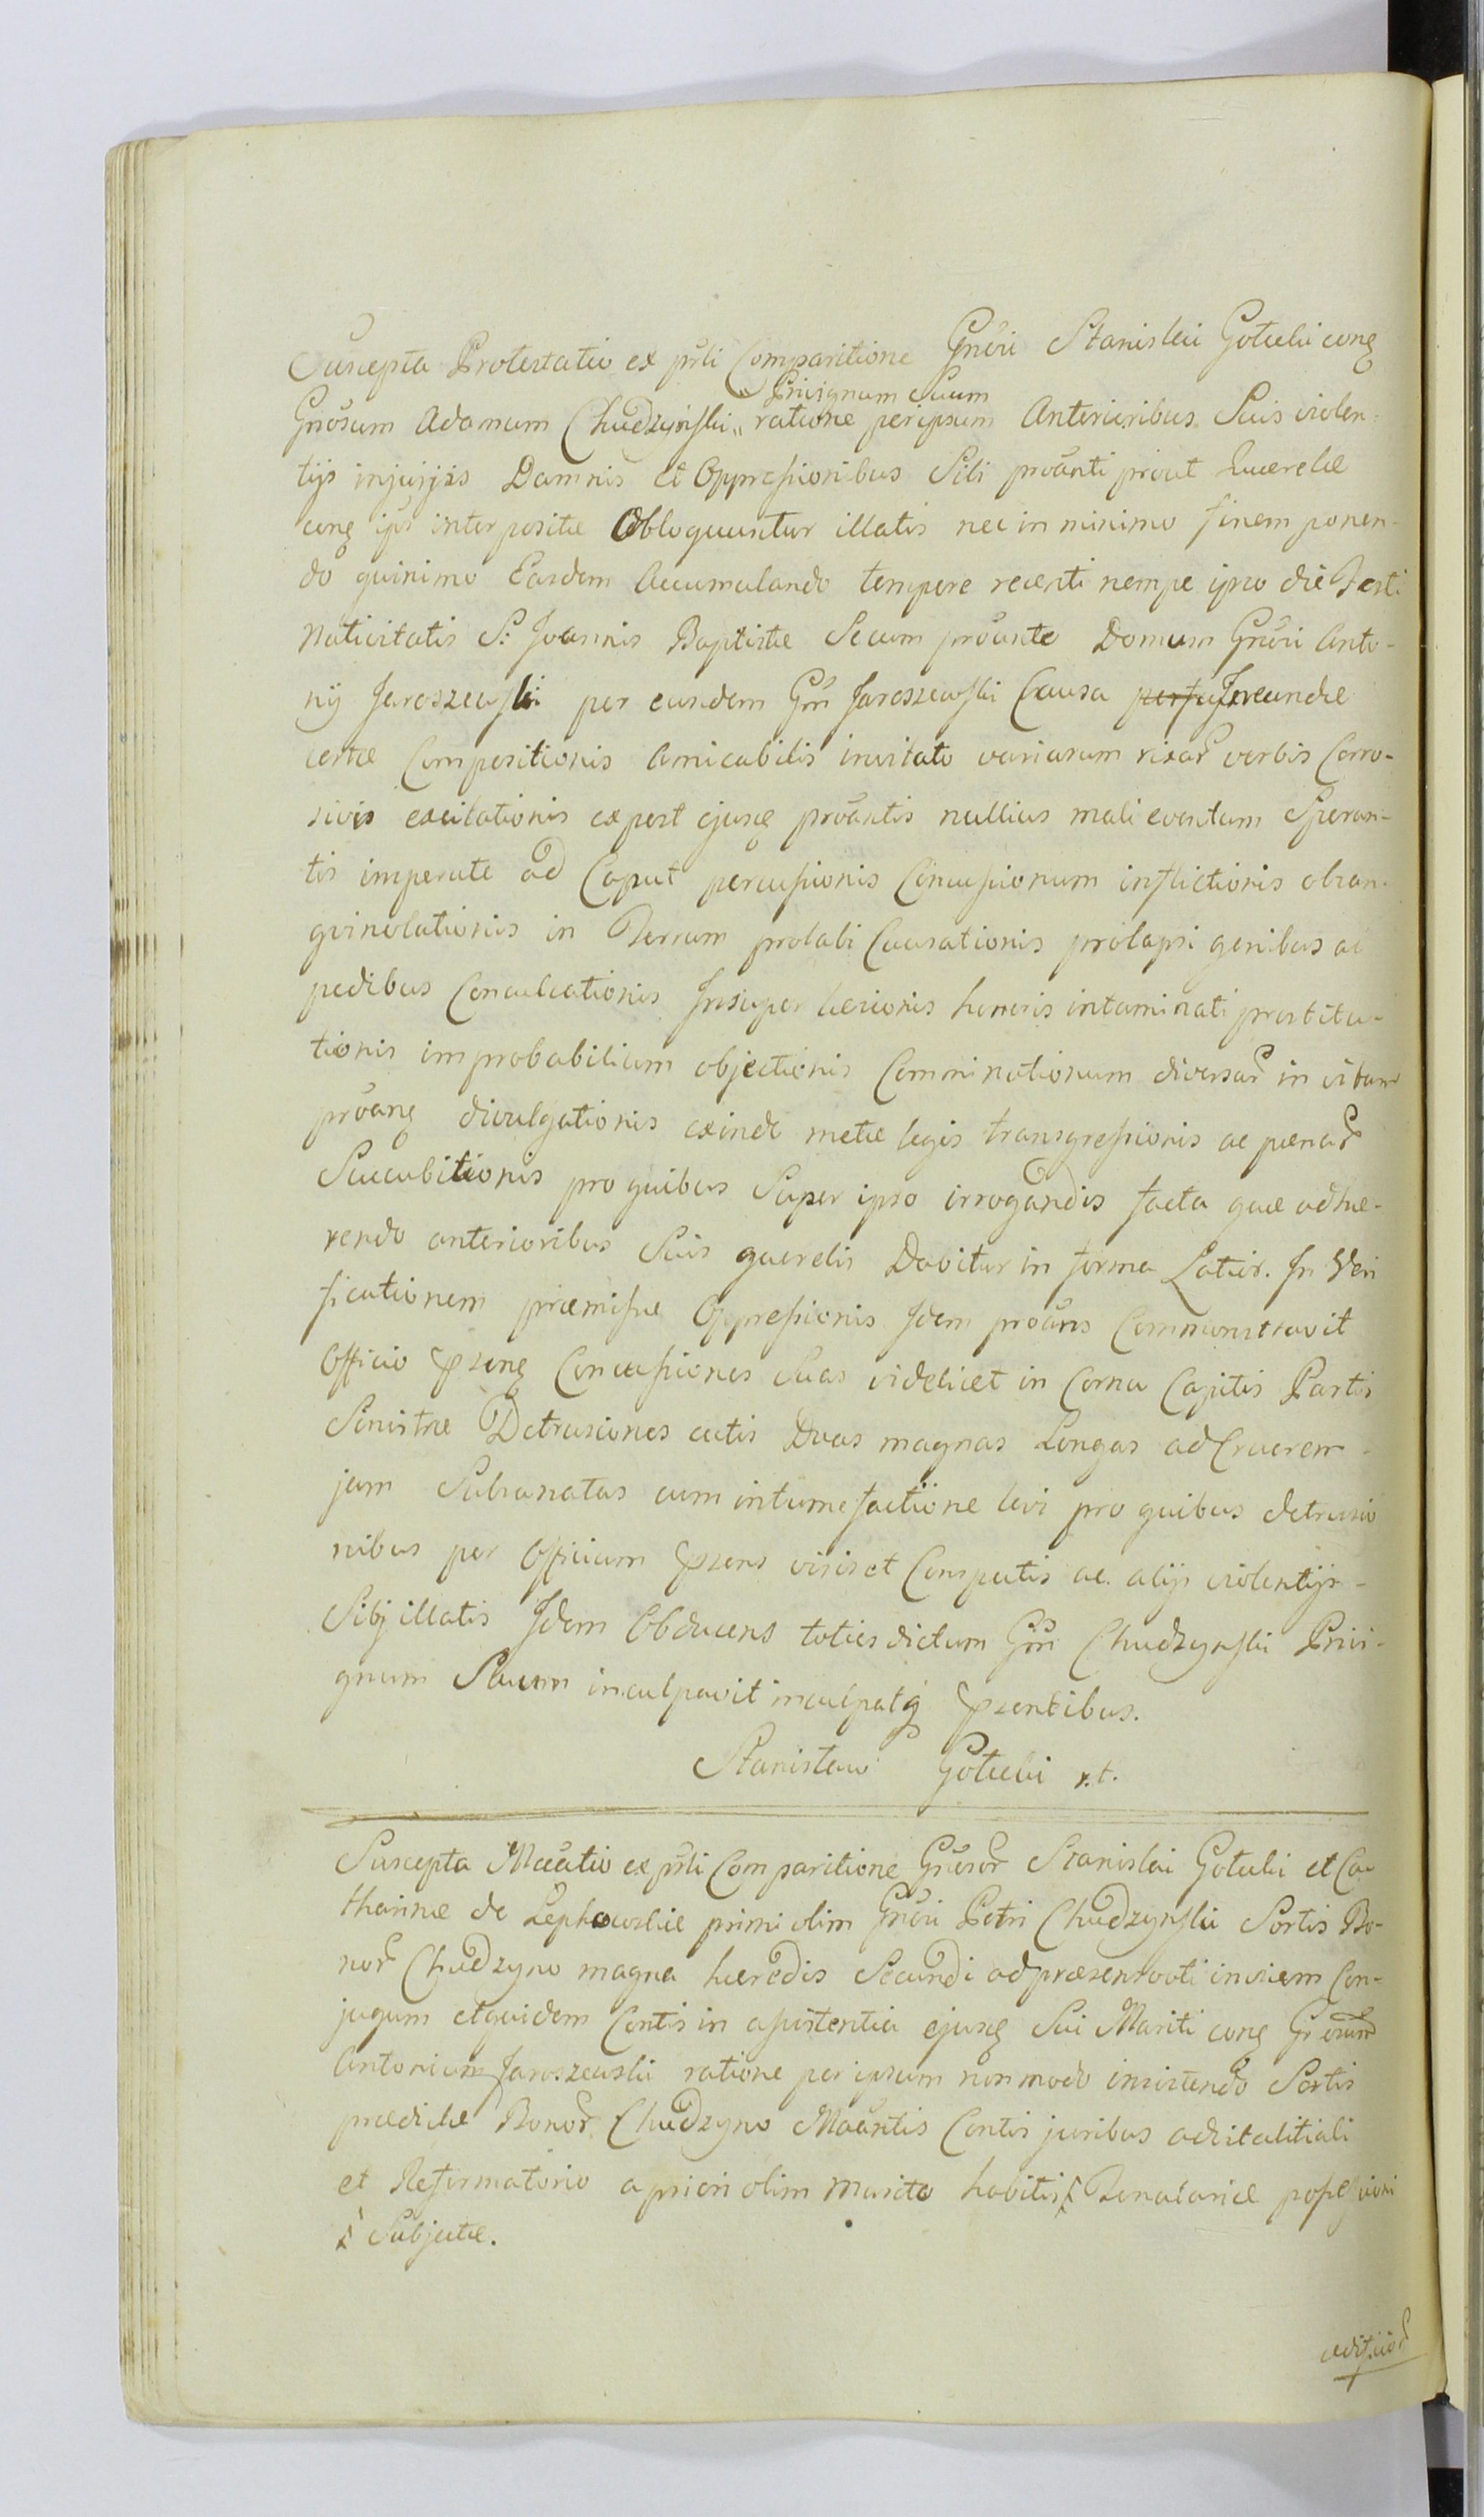 Suscepta Protestatio ex prli Comparitione Gnosi Stanislai Gotulii cong
Privignum Suum
Gnosum Adamum Chudzynski " ratione per ipsum Anterioribus Suis violen-
tijs injurijs Damnis et Oppressionibus Sibi proanti prout Querelae
cong ips interpositae Obloquuntur illatis nec in minimo finem ponen-
do quinimo Easdem Accumulando tempore recenti nempe ipso die Festi
Nativitatis S: Joannis Baptistae Secum proante Domum Gnosi Anto-
nij Jaroszewski per eundem Gm Jaroszewski Causa Ineundae
certae Compositionis Amicabilis invitato variarum rixar verbis Corro-
sivis excitationis ex post ejusq proantis nullius mali eventum Speran-
tis imperate ad Caput percussionis Concussionum inflictionis obsan-
gvinolationis in Terram prolabi Causationis prolapsi genibus ac
pedibus Conculcationis Insuper laesionis honoris intaminati prostitu-
tionis improbabilium objectionis Comminationum diversar in vitam
proang divulgationis exinde metae legis transgressionis ac paenar
Succubitionis pro quibus Super ipso irrogandis facta quae adhae-
rendo anterioribus Suis querelis Dabitur in forma Latior. In Veri
ficationem praemissae Oppressionis Idem proans Commonstravit
Officio Psenq Concussiones Suas videlicet in Cornu Capitis Partis
Sinistrae Detrusiones cutis Duas magnas Longas ad Cruorem
jam Subsanatas cum intumefactione levi pro quibus detrusio
nibus per Officium Psens visis et Conspectis ac alijs violentijs
Sibj illatis Idem Obducens toties dictum Gm Chudzynski Privi-
gnum Suum inculpavit inculpatq Psentibus.
Stanisław Gotulii
Suscepta Maatio ex prli Comparitione Gnosor Stanislai Gotulii et Ca-
tharinae de Lepkowskie primi olim Gnosi Petri Chudzynskii Sortis Bo-
nor Chudzyno magna haeredis Secundi ad praesens voti invicem Con-
jugum et quidem Contis in assistentia ejusq Sui Mariti cong Gnosum
Antonium Jaroszewski ratione per ipsum non modo insistendo Sortis
praedictae Bonor Chudzyno Maantis Contis juribus advitalitiali
et Reformatorio a priori olim Marito habitis Tenutariae possessioni
Subjectae.